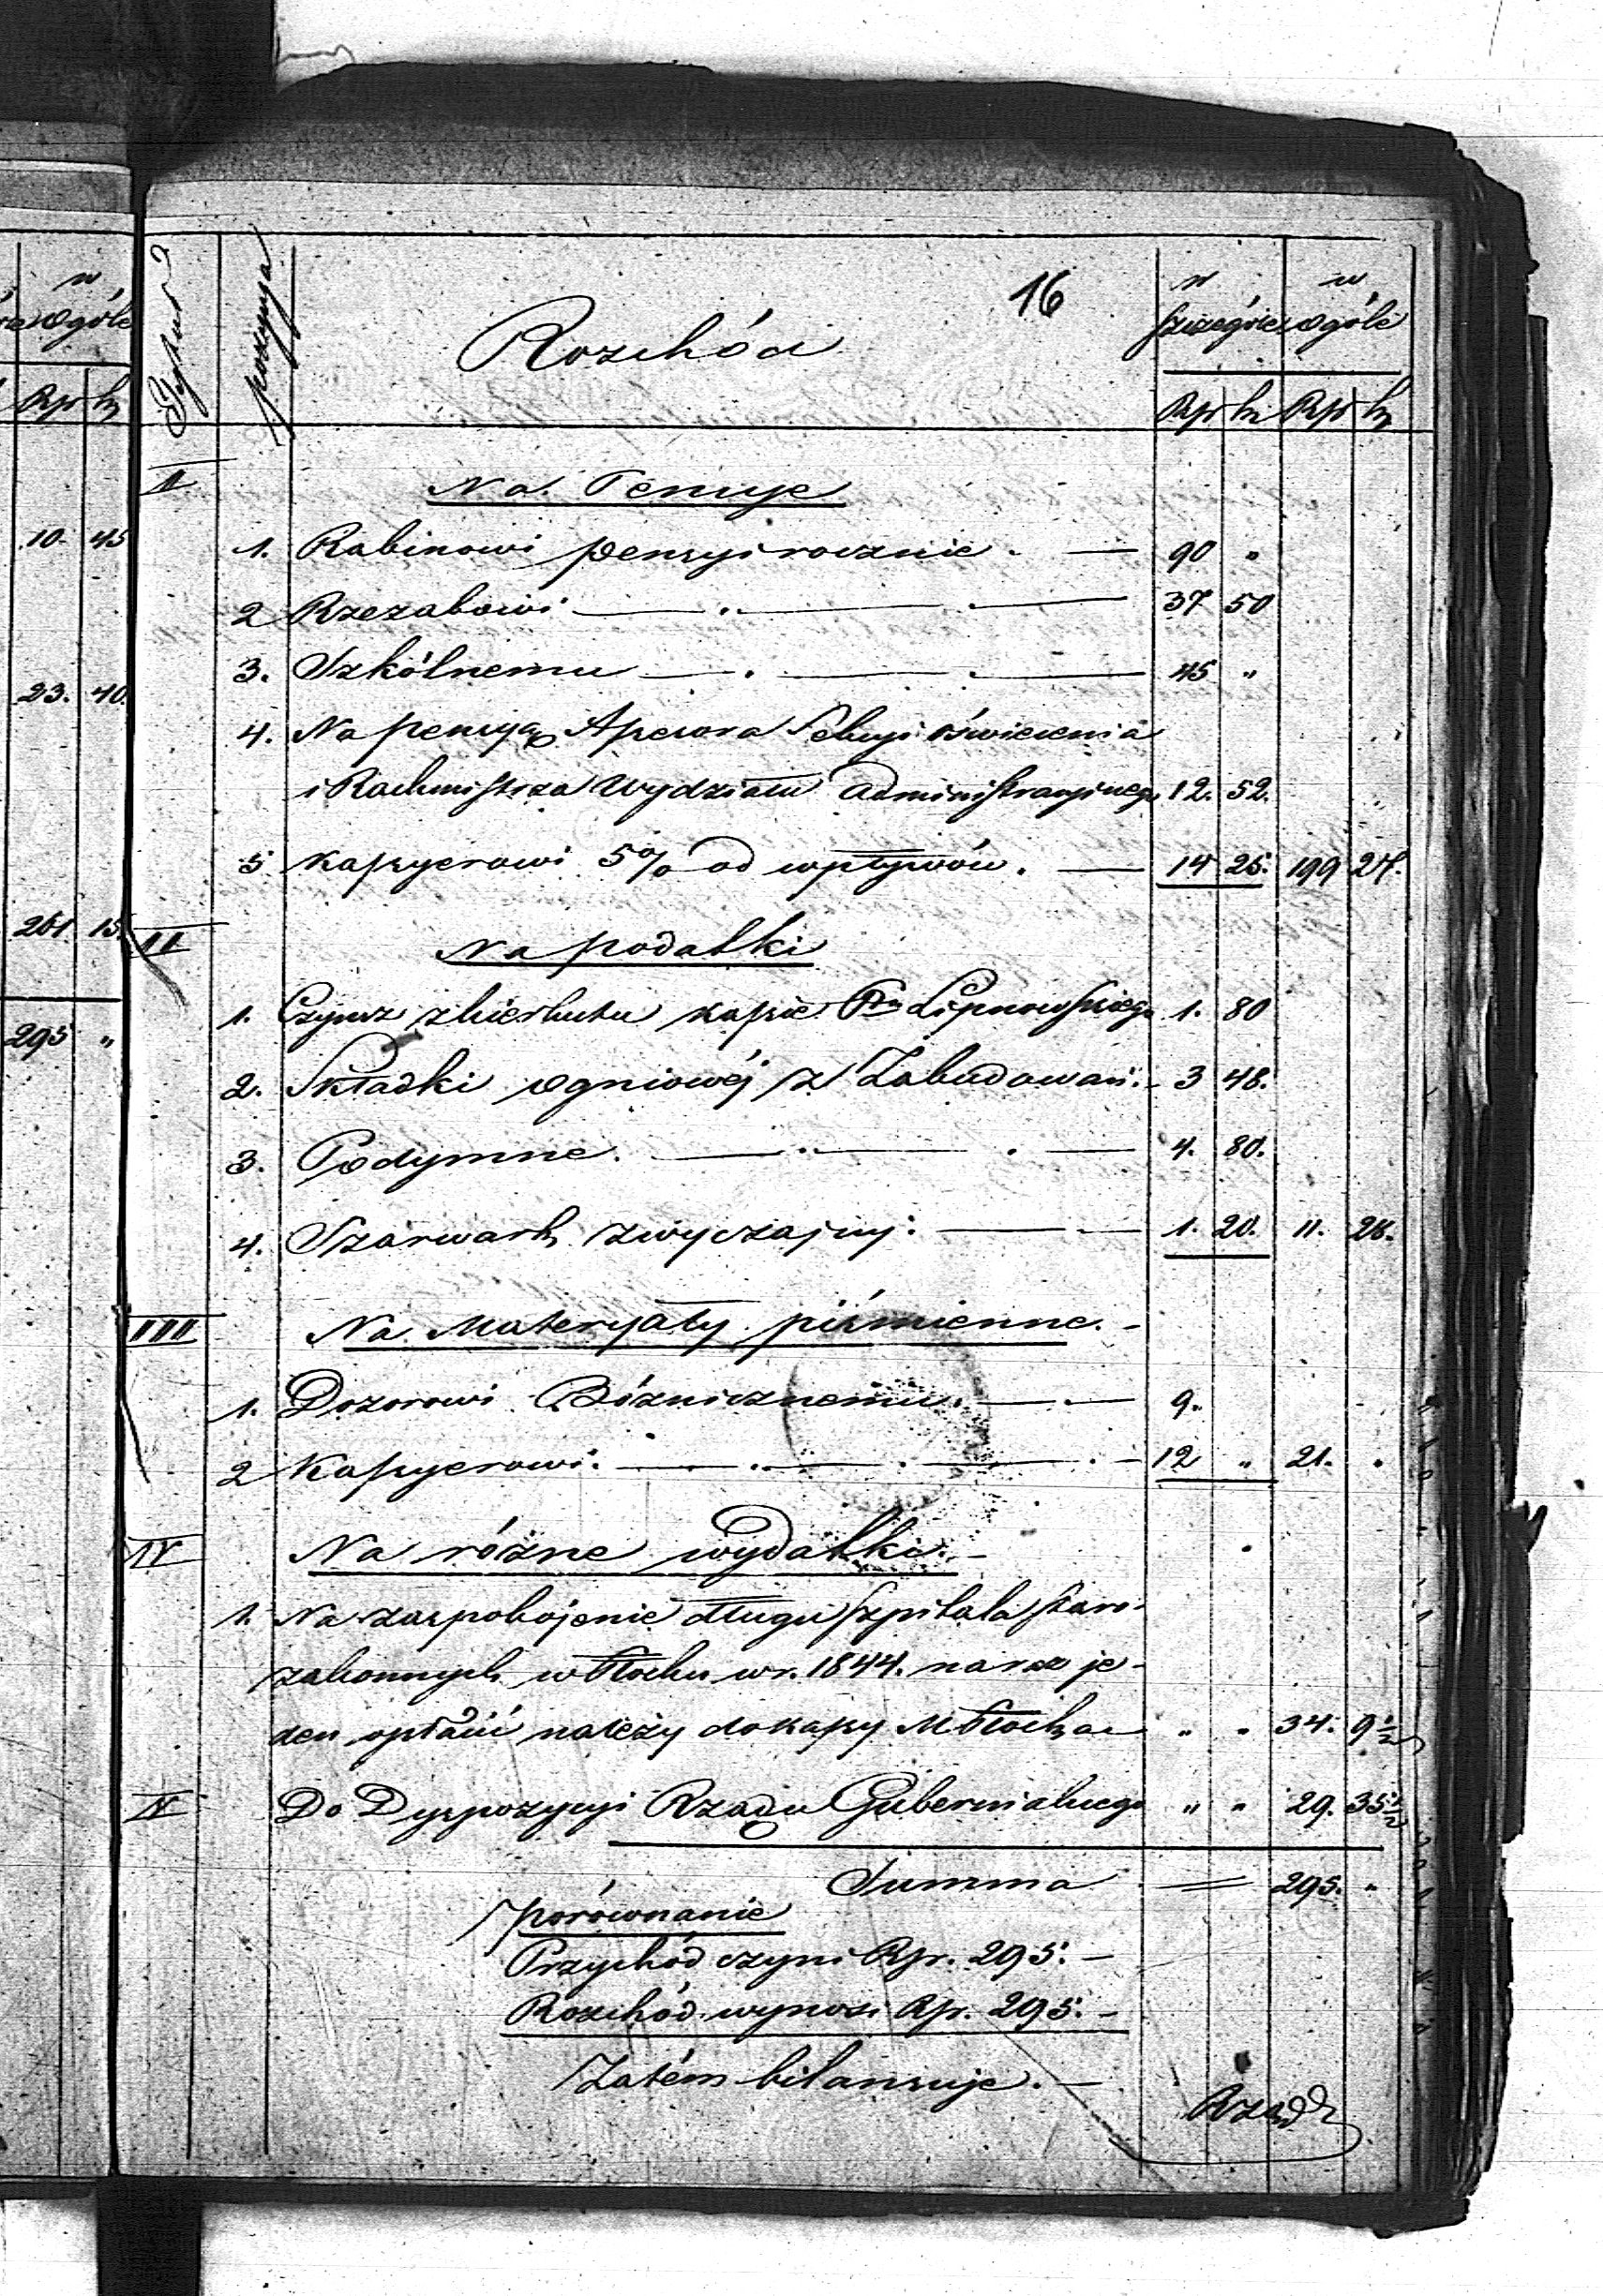 w
ogóle
Rsr k
10. 45
23. 40.
261 15.
295 "
Tytuł
pozycya
Rozchód
16
w szczególe
w ogóle
Rsr k Rsr k
I
Na Pensye
1. Rabinowi pensyi rocznie. — 90 "
2 Rzezakowi — " — 37 50
3. Szkólnemu — . — 45 "
4. Na pensyą Assesora Sekcyi oświecenia
i Rachmistrza Wydziału Administracyjnego 12. 52.
5 Kassyerowi 5% od wpływów. — 14 25. 199 27.
II
Na podatki
1. Czynsz z kierkutu kassie Lipnowskiego 1. 80
2. Składki ogniowéj z Zabudowań. - 3 48.
3. Podymne. — " — . — 4. 80.
4. Szarwark zwyczajny. — 1. 20. 11. 28.
III
Na Materyały piśmienne. -
1. Dozorowi Bóżnicznemu. — 9.
2 Kassyerowi. — " — . — 12 " 21. "
IV
Na różne wydatki. -
1. Na zaspokojenie długu szpitala staro-
zakonnych w Płocku w r. 1844. na raz je-
den opłacić należy do kassy M Płocka " " 34. 9½
V
Do Dyspozycyi Rządu Gubernialnego " " 29. 35½
Summa = 295. "
porównanie
Przychód czyni Rsr. 295. -
Rozchód wynosi Rsr. 295. -
Zatém bilansuje. -